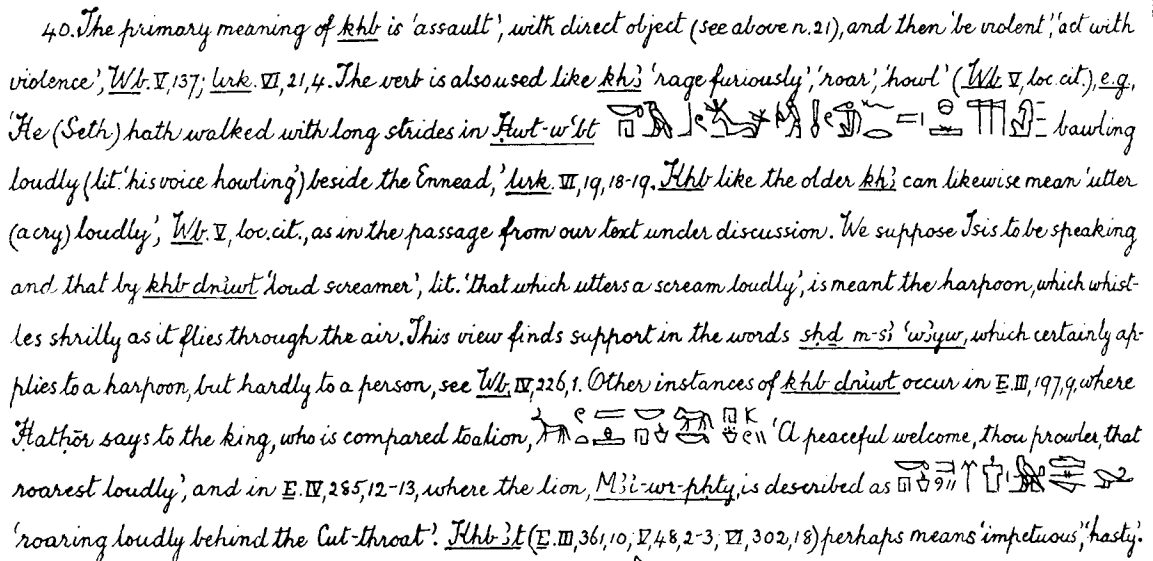 40. The primary meaning of khb is 'assault', with direct object (see above n.21), and then 'be violent', 'act with
violence', Wb. V, 137; Urk. VI, 21, 4. The verb is also used like khꜣ 'rage furiously', 'roar', 'howl' (Wb V, loc. cit.), e.g.
'He (Seth) hath walked with long strides in Ḥwt-wꜥbt bawling
loudly (lit. 'his voice howling') beside the Ennead,' Urk. VI, 19, 18-19. Khb like the older khꜣ can likewise mean 'utter
(a cry) loudly', Wb. V, loc. cit., as in the passage from our text under discussion. We suppose Isis to be speaking
and that by khb dnỉwt 'loud screamer', lit. 'that which utters a scream loudly', is meant the harpoon, which whist-
les shrilly as it flies through the air. This view finds support in the words sḥḏ m-sꜣ ꜥwꜣyw, which certainly ap-
plies to a harpoon, but hardly to a person, see Wb, IV, 226, 1. Other instances of khb dnỉwt occur in E. III, 197, 9, where
Ḥatḥōr says to the king, who is compared to a lion, 'A peaceful welcome, thou prowler, that
roarest loudly', and in E. IV, 285, 12-13, where the lion, Mꜣỉ-wr-pḥty, is described as
'roaring loudly behind the Cut-throat'. Khb ꜣt (E. III, 361, 10; V, 48, 2-3; VI, 302, 18) perhaps means 'impetuous', 'hasty'.